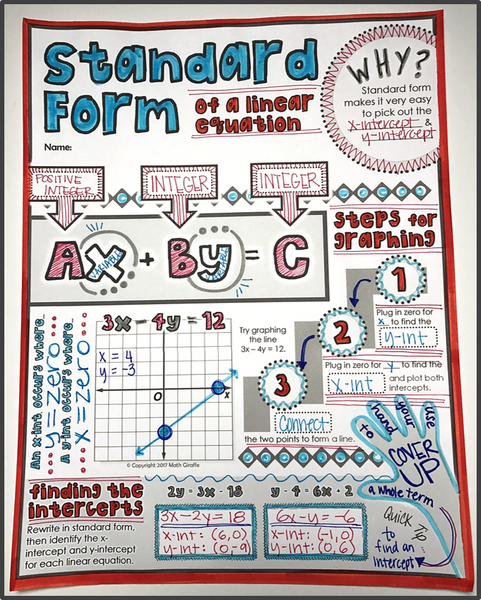 Standard
Form
of a linear
equation
Name:
WHY?
Standard form
makes it very easy
to pick out the
x-intercept &
y-intercept
POSITIVE
INTEGER
INTEGER
INTEGER
Ax + By = C
VARIABLE
VARIABLE
steps for
graphing
1
Plug in zero for
x to find the
y-int
2
Plug in zero for y to find the
x-int and plot both
intercepts.
3
Connect
the two points to form a line.
An x-int occurs where...
y=zero
A y-int occurs where...
x=zero
3x - 4y = 12
x = 4
y = -3
O
x
Try graphing
the line
3x – 4y = 12.
© Copyright 2017 Math Giraffe
use
your
hand
to
COVER
UP
a whole term
Quick
Tip
to
find an
intercept
finding the
intercepts
Rewrite in standard form,
then identify the x-
intercept and y-intercept
for each linear equation.
2y = 3x - 18
3x-2y=18
x-int: (6,0)
y-int: (0,-9)
y - 4 = 6x + 2
6x-y=-6
x-int: (-1,0)
y-int: (0,6)